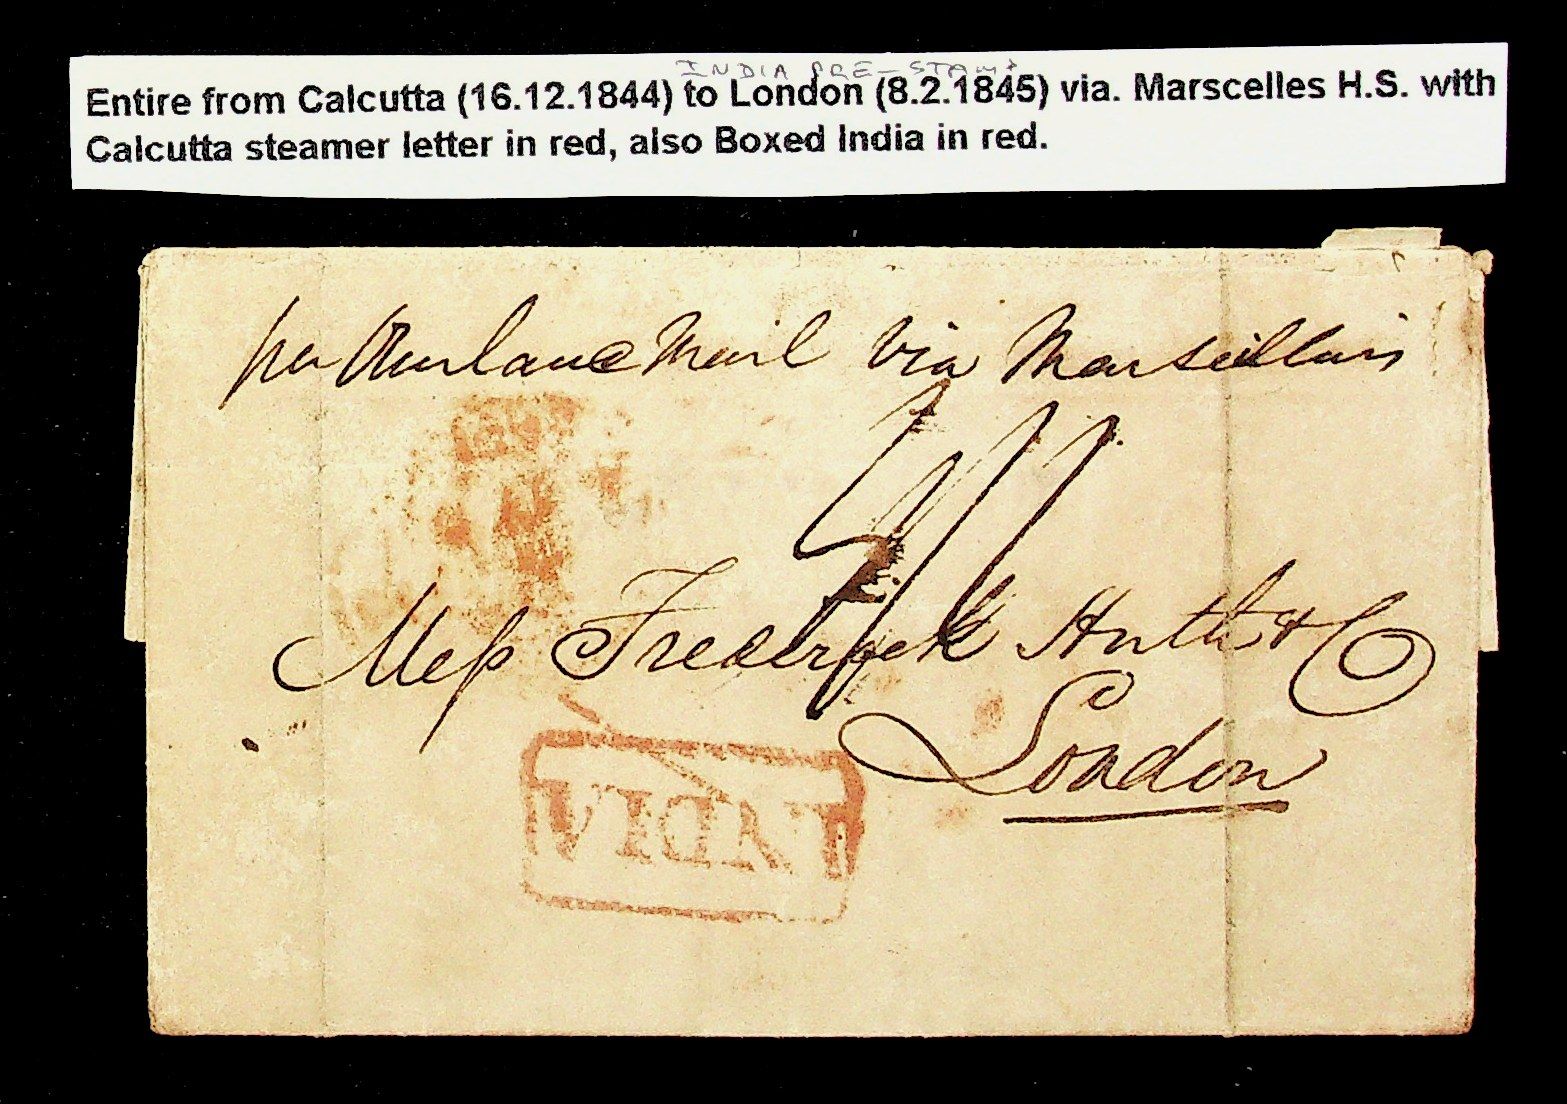 INDIA PRE-STAMP
Entire from Calcutta (16.12.1844) to London (8.2.1845) via. Marscelles H.S. with
Calcutta steamer letter in red, also Boxed India in red.
per Overland Mail via Marseilles
Mess Frederick Huth & Co
London
INDIA